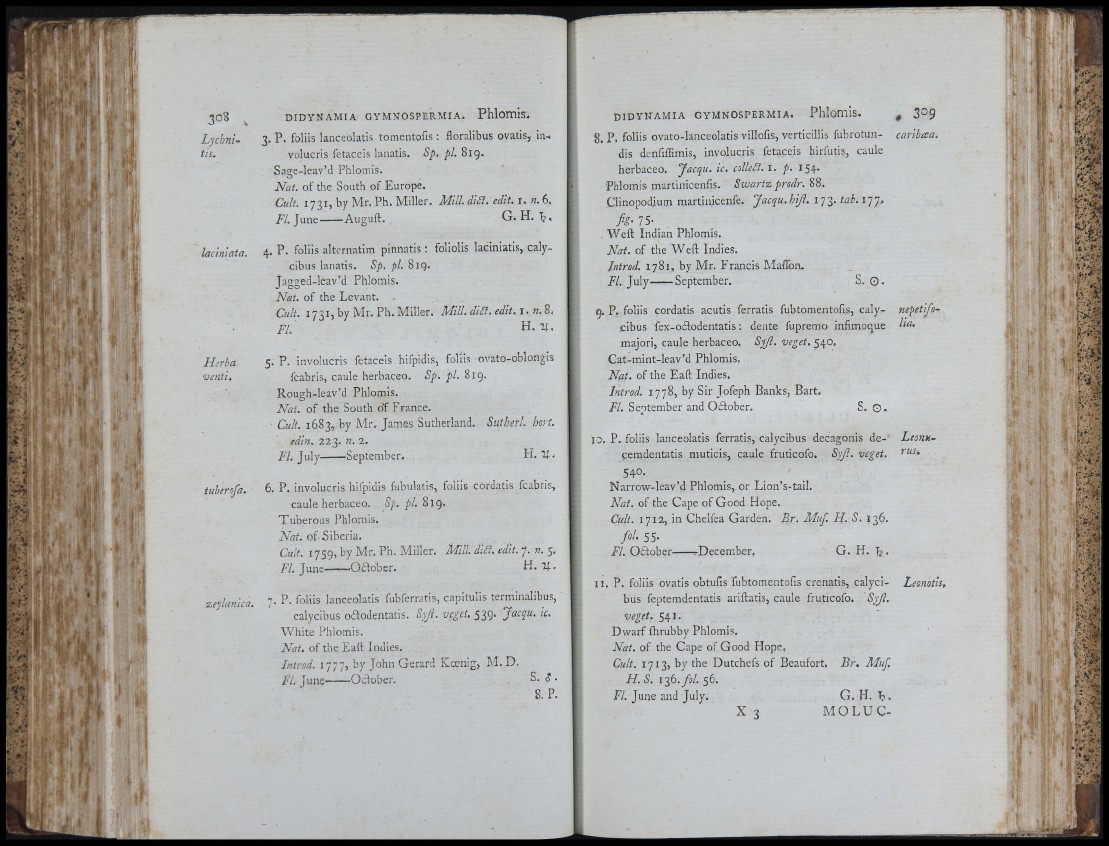 308 DIDYNAMIA GYMNOSPERMIA. Phlomis.
Lychni- 3. P. foliis lanceolatis tomentoſis : floralibus ovatis, in-
tis. volucris ſetaceis lanatis. Sp. pl. 819.
Sage-leav'd Phlomis.
Nat. of the South of Europe.
Cult. 1731, by Mr. Ph. Miller. Mill. dict. edit. 1. n. 6.
Fl. June——Auguſt. G. H. ♄.
laciniata. 4. P. foliis alternatim pinnatis : foliolis laciniatis, caly-
cibus lanatis. Sp. pl. 819.
Jagged-leav'd Phlomis.
Nat. of the Levant.
Cult. 1731, by Mr. Ph. Miller. Mill. dict. edit. 1. n. 8.
Fl. H. ♃.
Herba 5. P. involucris ſetaceis hiſpidis, foliis ovato-oblongis
venti. ſcabris, caule herbaceo. Sp. pl. 819.
Rough-leav'd Phlomis.
Nat. of the South of France.
Cult. 1683, by Mr. James Sutherland. Sutherl. hort.
edin. 223. n. 2.
Fl. July——September. H. ♃.
tuberoſa. 6. P. involucris hiſpidis ſubulatis, foliis cordatis ſcabris,
caule herbaceo. Sp. pl. 819.
Tuberous Phlomis.
Nat. of Siberia.
Cult. 1759, by Mr. Ph. Miller. Mill. dict. edit. 7. n. 5.
Fl. June——October. H. ♃.
zeylanica. 7. P. foliis lanceolatis ſubſerratis, capitulis terminalibus,
calycibus octodentatis. Syſt. veget. 539. Jacqu. ic.
White Phlomis.
Nat. of the Eaſt Indies.
Introd. 1777, by John Gerard Kœnig, M. D.
Fl. June——October. S. ♂.
8. P.
DIDYNAMIA GYMNOSPERMIA. Phlomis. 309
8. P. foliis ovato-lanceolatis villoſis, verticillis ſubrotun- caribæa.
dis denſiſſimis, involucris ſetaceis hirſutis, caule
herbaceo. Jacqu. ic. collect. 1. p. 154.
Phlomis martinicenſis. Swartz prodr. 88.
Clinopodium martinicenſe. Jacqu. hiſt. 173. tab. 177.
fig. 75.
Weſt Indian Phlomis.
Nat. of the Weſt Indies.
Introd. 1781, by Mr. Francis Maſſon.
Fl. July——September. S. ☉.
9. P. foliis cordatis acutis ſerratis ſubtomentoſis, caly- nepetifo-
cibus ſex-octodentatis : dente ſupremo infimoque lia.
majori, caule herbaceo. Syſt. veget. 540.
Cat-mint-leav'd Phlomis.
Nat. of the Eaſt Indies.
Introd. 1778, by Sir Joſeph Banks, Bart.
Fl. September and October. S. ☉.
10. P. foliis lanceolatis ſerratis, calycibus decagonis de- Leonu-
cemdentatis muticis, caule fruticoſo. Syſt. veget. rus.
540.
Narrow-leav'd Phlomis, or Lion's-tail.
Nat. of the Cape of Good Hope.
Cult. 1712, in Chelſea Garden. Br. Muſ. H. S. 136.
fol. 55.
Fl. October——December. G. H. ♄.
11. P. foliis ovatis obtuſis ſubtomentoſis crenatis, calyci- Leonotis.
bus ſeptemdentatis ariſtatis, caule fruticoſo. Syſt.
veget. 541.
Dwarf ſhrubby Phlomis.
Nat. of the Cape of Good Hope.
Cult. 1713, by the Dutcheſs of Beaufort. Br. Muſ.
H. S. 136. fol. 56.
Fl. June and July. G. H. ♄.
X 3 MOLUC-